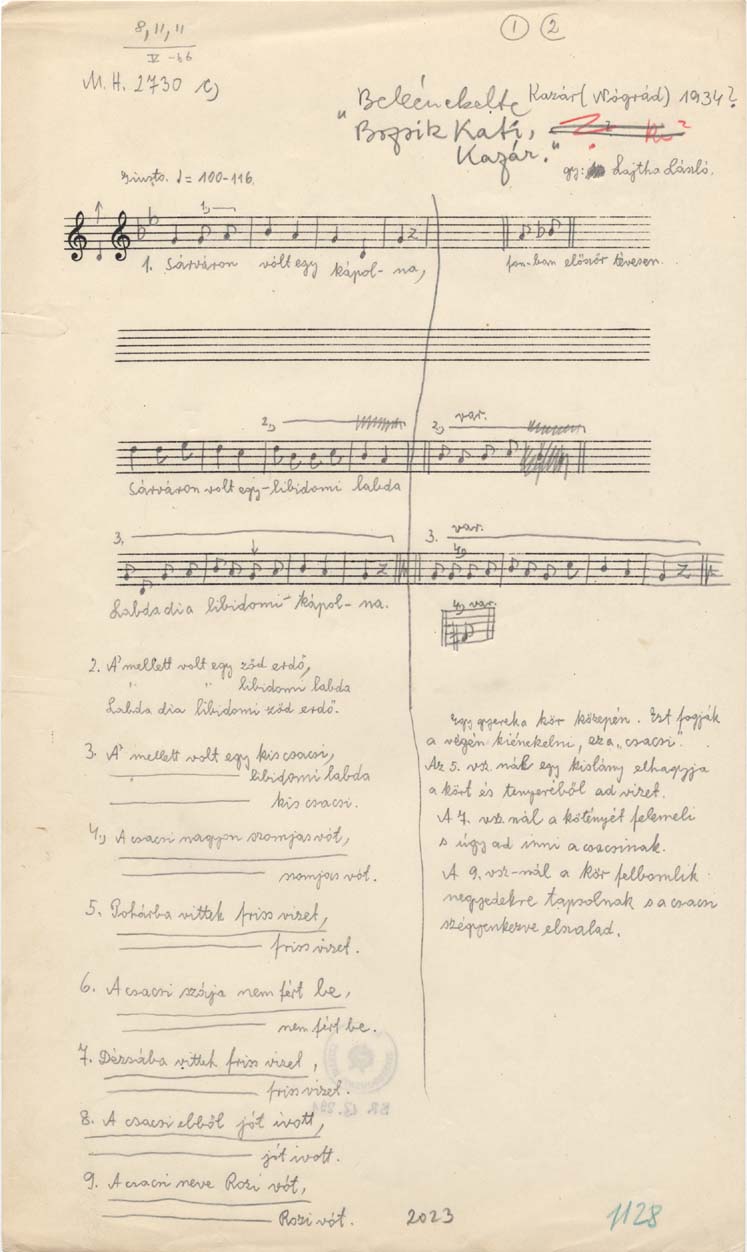 8, 11, 11
V -66
M. H. 2730 c)
1 2
"Belénekelte
Bozsik Kati,
Kazár."
Kazár (Nógrád) 1934?
gy: Lajtha László.
Giusto. ♩ = 100-116.
1,
1. Sárváron vólt egy kápol- na,
fon-ban először tévesen.
2,
2, var.
Sárváron volt egy-libidomi labda
3,
3. var.
4,
Labda dia libidomi- kápol- na.
4, var.
2. A' mellett volt egy ződ erdő,
" " libidomi labda
Labda dia libidomi ződ erdő.
3. A' mellett volt egy kis csacsi,
libidomi labda
kis csacsi.
4, A csacsi nagyon szomjas vót,
szomjas vót.
5. Pohárba vittek friss vizet,
friss vizet.
6. A csacsi szája nem fért be,
nem fért be.
7. Dézsába vittek friss vizet,
friss vizet.
8. A csacsi ebből jót ivott,
jót ivott.
9. A csacsi neve Rozi vót,
Rozi vót.
Egy gyerek a kör közepén. Ezt fogják
a végén kiénekelni, ez a „csacsi".
Az 5. vsz. nál egy kislány elhagyja
a kört és tenyeréből ad vizet.
A 7. vsz. nál a kötényét felemeli
s úgy ad inni a csacsinak.
A 9. vsz-nál a kör felbomlik
negyedekre tapsolnak s a csacsi
szégyenkezve elszalad.
2023
1128